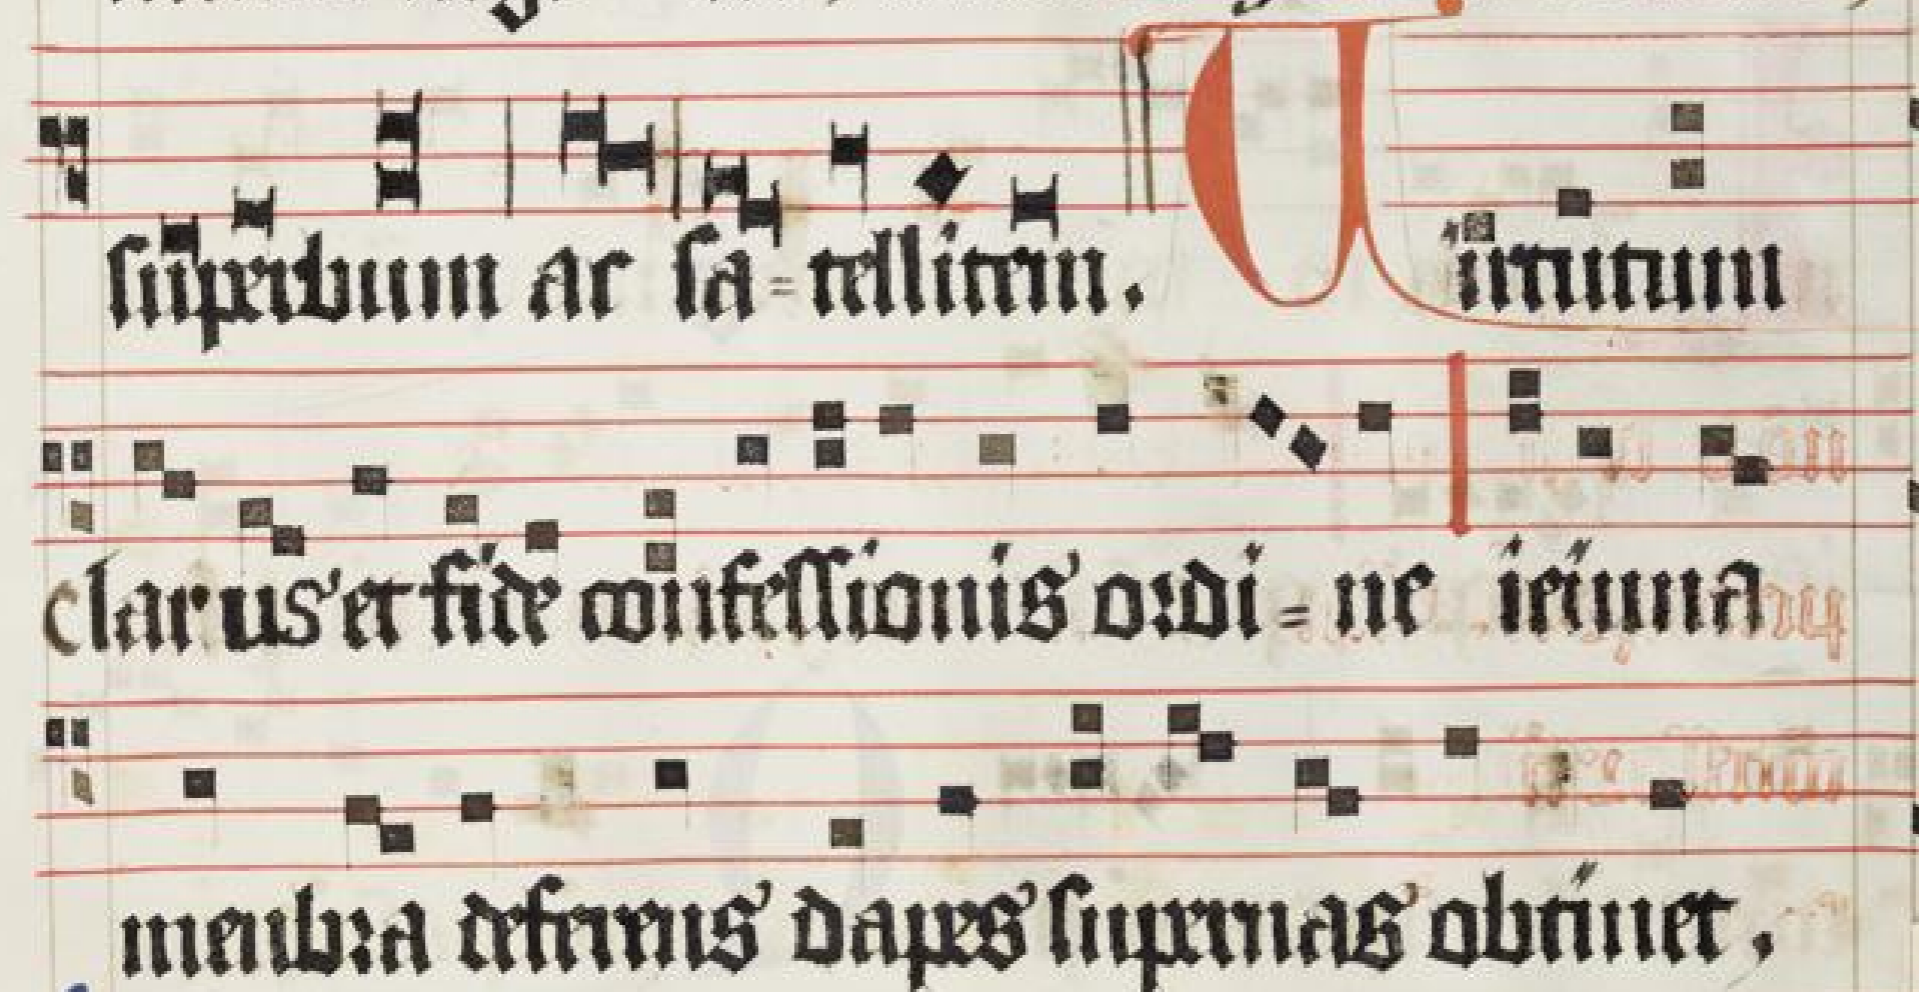 superbum ac sa=tellitem. Uirtutum
clarus et fide confessionis ordi=ne ieiuna
menbra deferens dapes supernas obtinet,